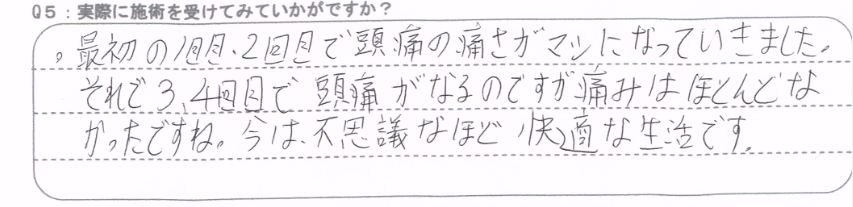 Q5：実際に施術を受けてみていかがですか？
。最初の1回目・2回目で頭痛の痛さがマシになっていきました。
それで3、4回目で頭痛がなるのですが痛みはほとんどな
かったですね。今は、不思議なほど快適な生活です。